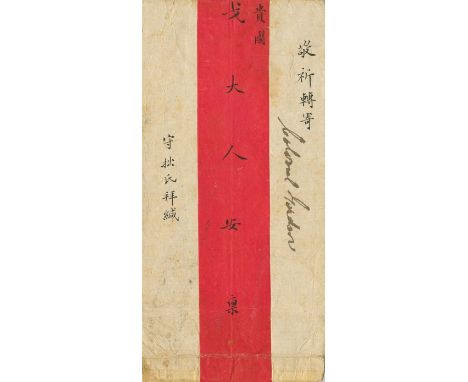 敬祈轉寄
Colonel Gordon
貴國
戈大人安稟
守拙氏拜緘